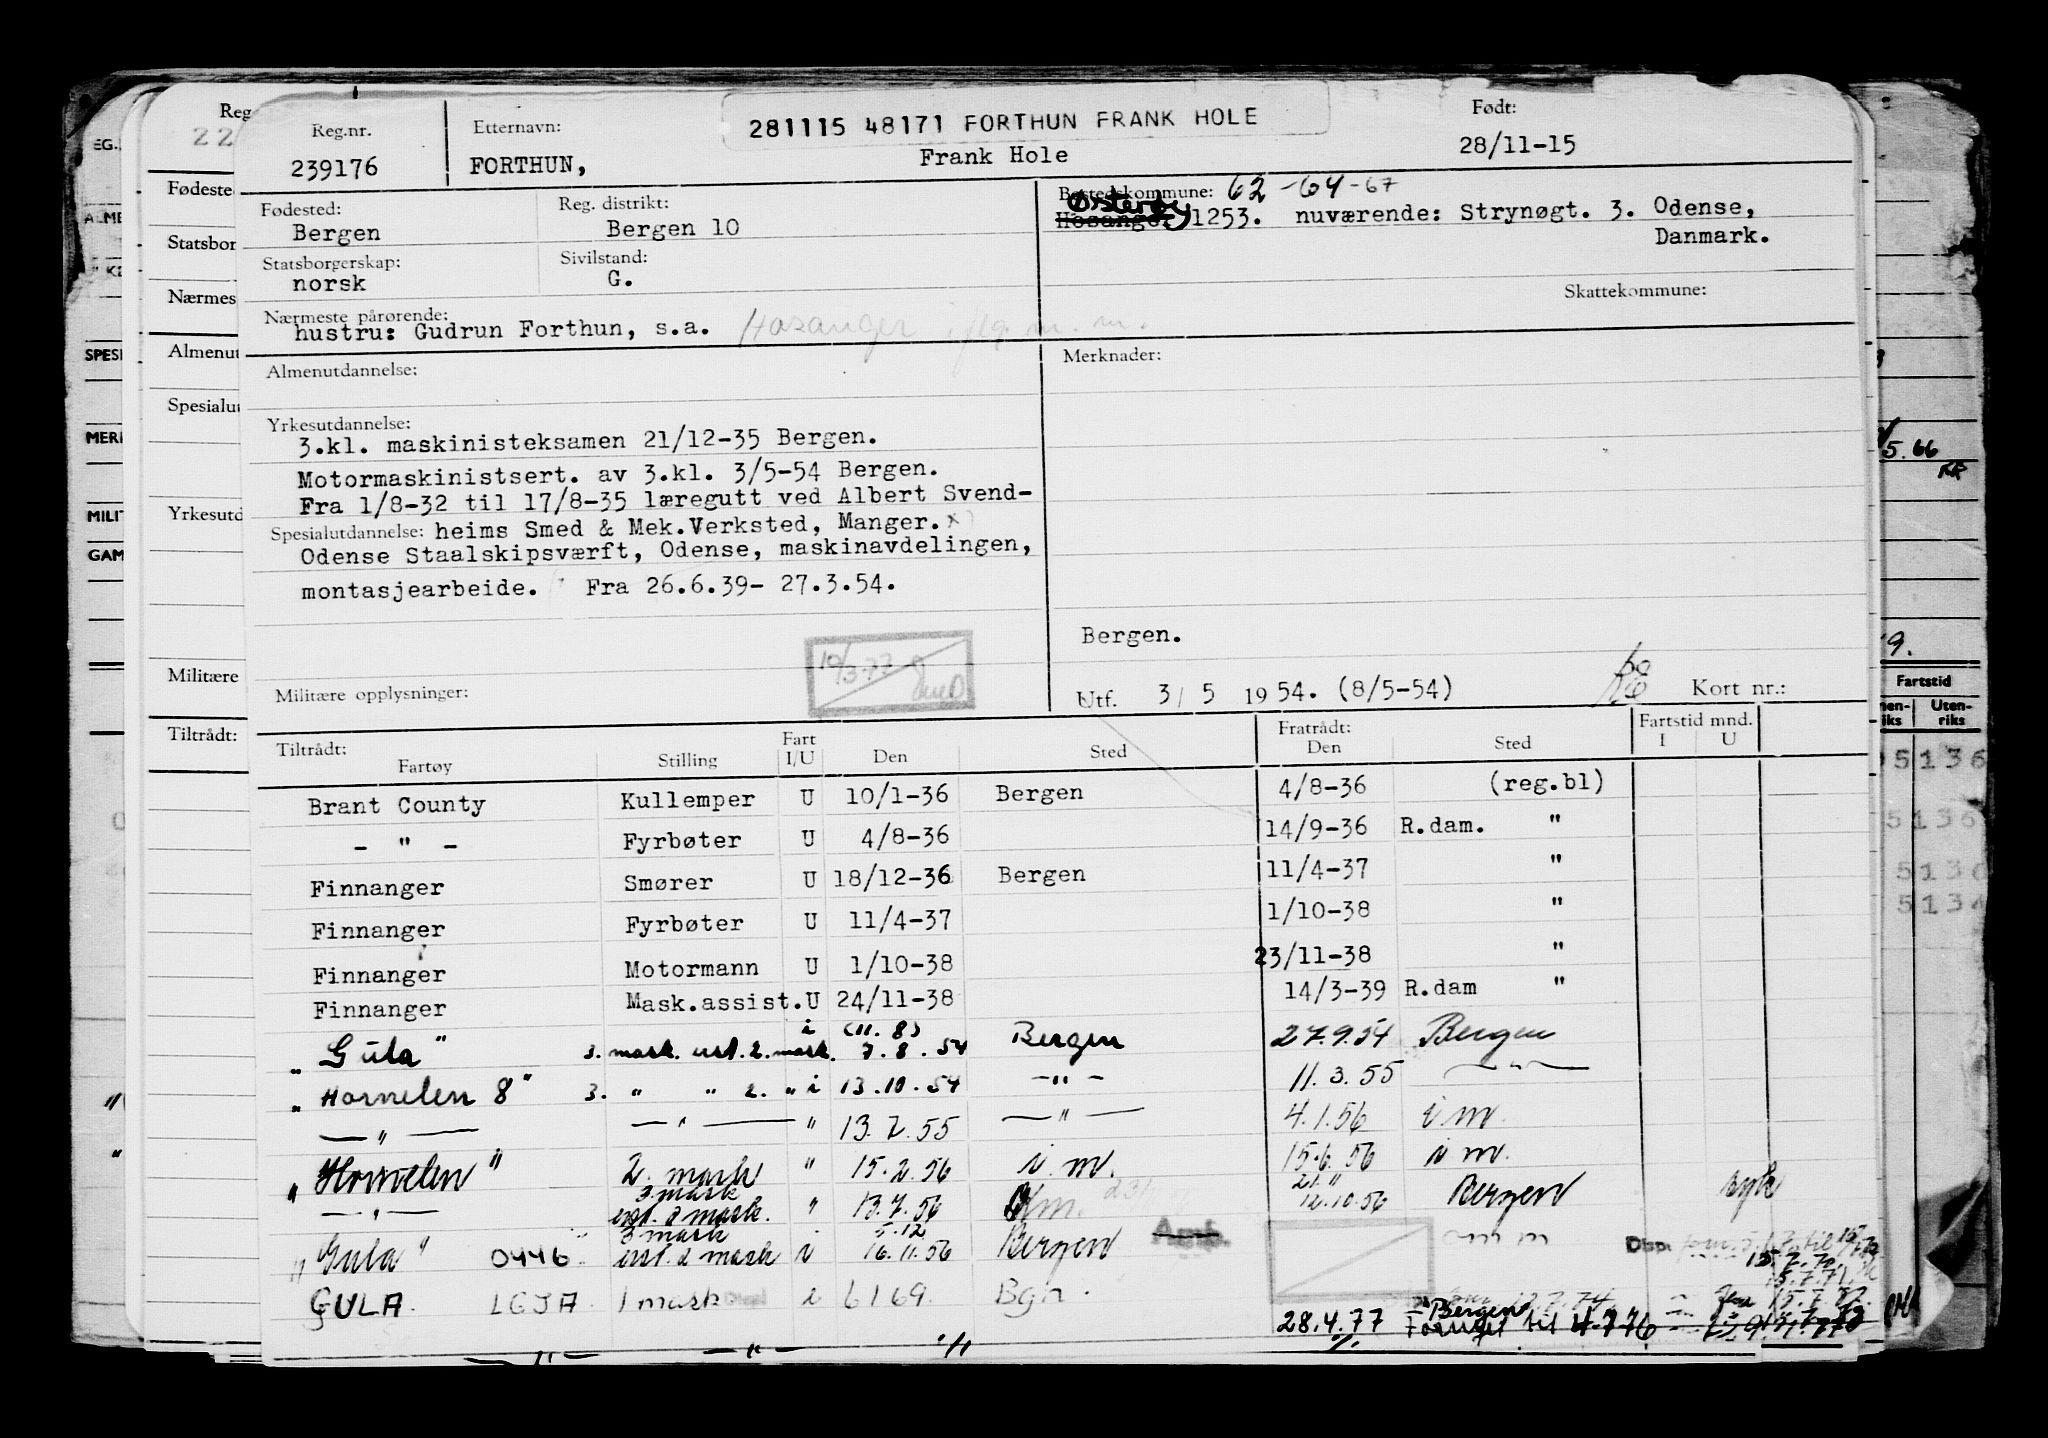 Reg.nr. 239176
Etternavn: FORTHUN,
281115 48171 FORTHUN FRANK HOLE
Frank Hole
Født: 28/11-15
Fødested: Bergen
Reg. distrikt: Bergen 10
Bostedskommune: 62-64-67
Osterøy
Hosanger 1253. nuværende: Strynøgt. 3. Odense,
Danmark.
Statsborgerskap: norsk
Sivilstand: G.
Skattekommune:
Nærmeste pårørende:
hustru: Gudrun Forthun, s.a. Hosanger
Almenutdannelse:
Merknader:
Yrkesutdannelse:
3.kl. maskinisteksamen 21/12-35 Bergen.
Motormaskinistsert. av 3.kl. 3/5-54 Bergen.
Fra 1/8-32 til 17/8-35 læregutt ved Albert Svend-
Spesialutdannelse: heims Smed & Mek.Verksted, Manger. x)
Odense Staalskipsværft, Odense, maskinavdelingen,
montasjearbeide. Fra 26.6.39- 27.3.54.
Bergen.
10/3-77
Militære opplysninger:
Utf. 3/ 5 1954. (8/5-54)
Kort nr.:
Tiltrådt: Fartøy Stilling Fart I/U Den Sted Fratrådt: Den Sted Fartstid mnd. I U
Brant County Kullemper U 10/1-36 Bergen 4/8-36 (reg.bl)
- " - Fyrbøter U 4/8-36 14/9-36 R.dam. "
Finnanger Smører U 18/12-36 Bergen 11/4-37 "
Finnanger Fyrbøter U 11/4-37 1/10-38 "
Finnanger Motormann U 1/10-38 23/11-38 "
Finnanger Mask.assist. U 24/11-38 14/3-39 R.dam "
(11.8)
"Gula" 3. mask. erst. 2. mask. i 7.8.54 Bergen 27.9.54 Bergen
"Hornelen 8" 3. " " 2. " i 13.10.54 -"- 11.3.55 -"-
-"- -"- " 13.7.55 -"- 4.1.56 i m.
"Hornelen" 2. mask " 15.2.56 i m. 15.6.56 i m.
-"- 3 mask erst. 2 mask. " 13.7.56 21." 12.10.56 Bergen syk
"Gula" 0446 3 mask erst. 2 mask i 5.12 16.11.56 Bergen Amt. Disp.
GULA LGJA 1 mask i 6 1 69. Bgn. 28.4.77 Bergen
Forlenget til 4.7.76
-"- -"-
Reg
22
Fødeste
Statsbor
Nærmes
Almenut
Spesialut
Yrkesutd
Militære
Tiltrådt:
EG.
ALME
SPESI
MERI
MILIT
GAM
5.66
9.
Fartstid
Uten-
riks
5136
5136
5136